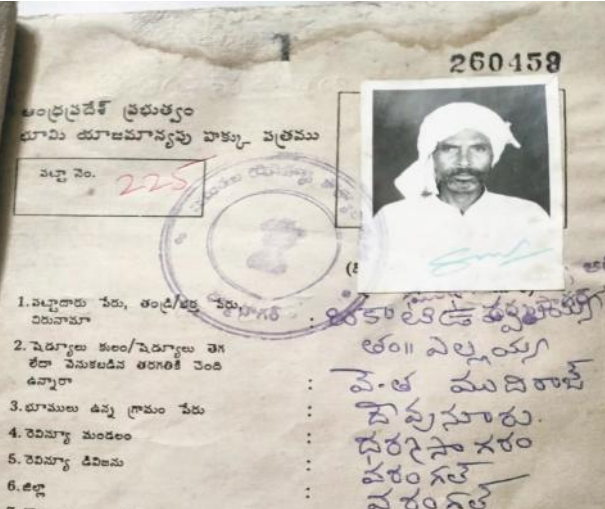 260459
ఆంధ్రప్రదేశ్ ప్రభుత్వం
భూమి యాజమాన్యపు హక్కు పత్రము
పట్టా నెం. 225
1. పట్టాదారు పేరు, తండ్రి/భర్త పేరు,
చిరునామా :
తం॥ ఎల్లయ్య
2. షెడ్యూలు కులం/షెడ్యూలు తెగ
లేదా వెనుకబడిన తరగతికి చెంది
ఉన్నారా : వె.త ముదిరాజ్
3. భూములు ఉన్న గ్రామం పేరు : దేవునూరు.
4. రెవిన్యూ మండలం : ధర్మసాగరం
5. రెవిన్యూ డివిజను : వరంగల్
6. జిల్లా : వరంగల్